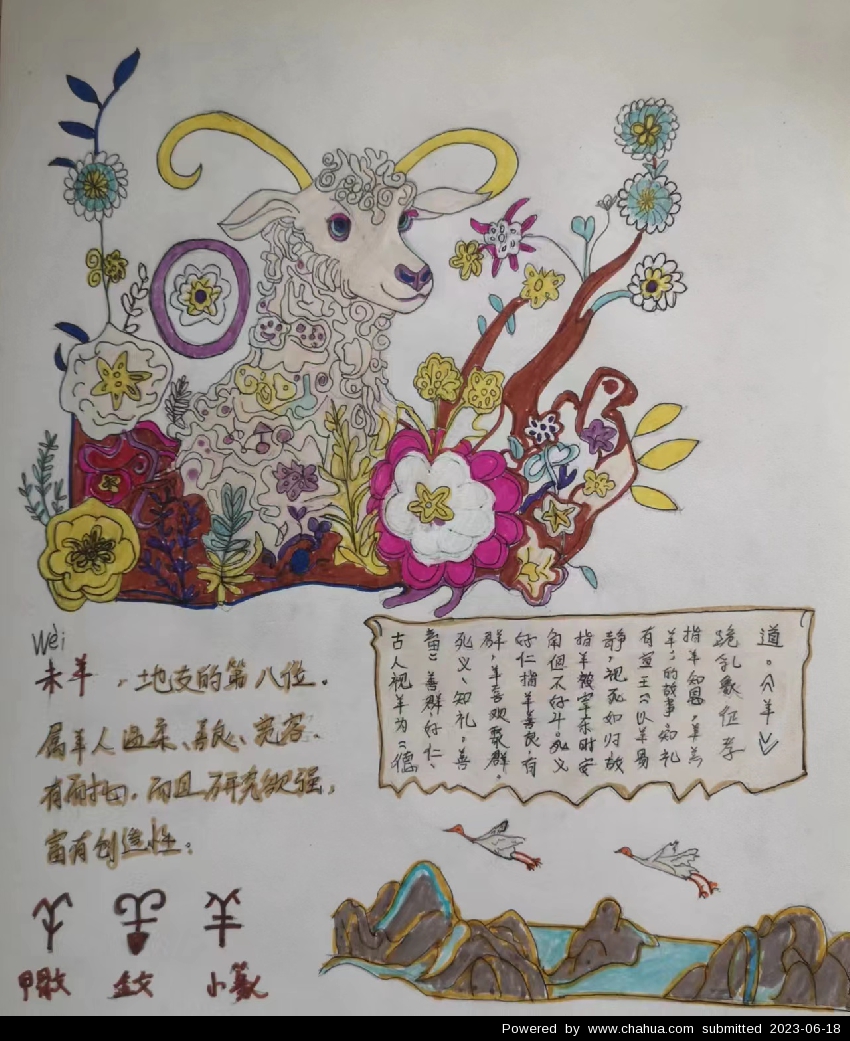 Wèi
未羊,地支的第八位。
属羊人温柔、善良、宽容、
有耐力,而且研究欲强,
富有创造性。
甲骸 金文 小篆
古人视羊为“德
畜”善群、好仁、
死义、知礼。善
群,羊喜欢聚群。
好仁指羊善良有
角但不好斗。死义
指羊被宰杀时安
静,视死如归故
有宣王“以羊易
羊”的故事。知礼
指羊知恩,羊羔
跪乳象征孝
道。《羊》
Powered by www.chahua.com submitted 2023-06-18